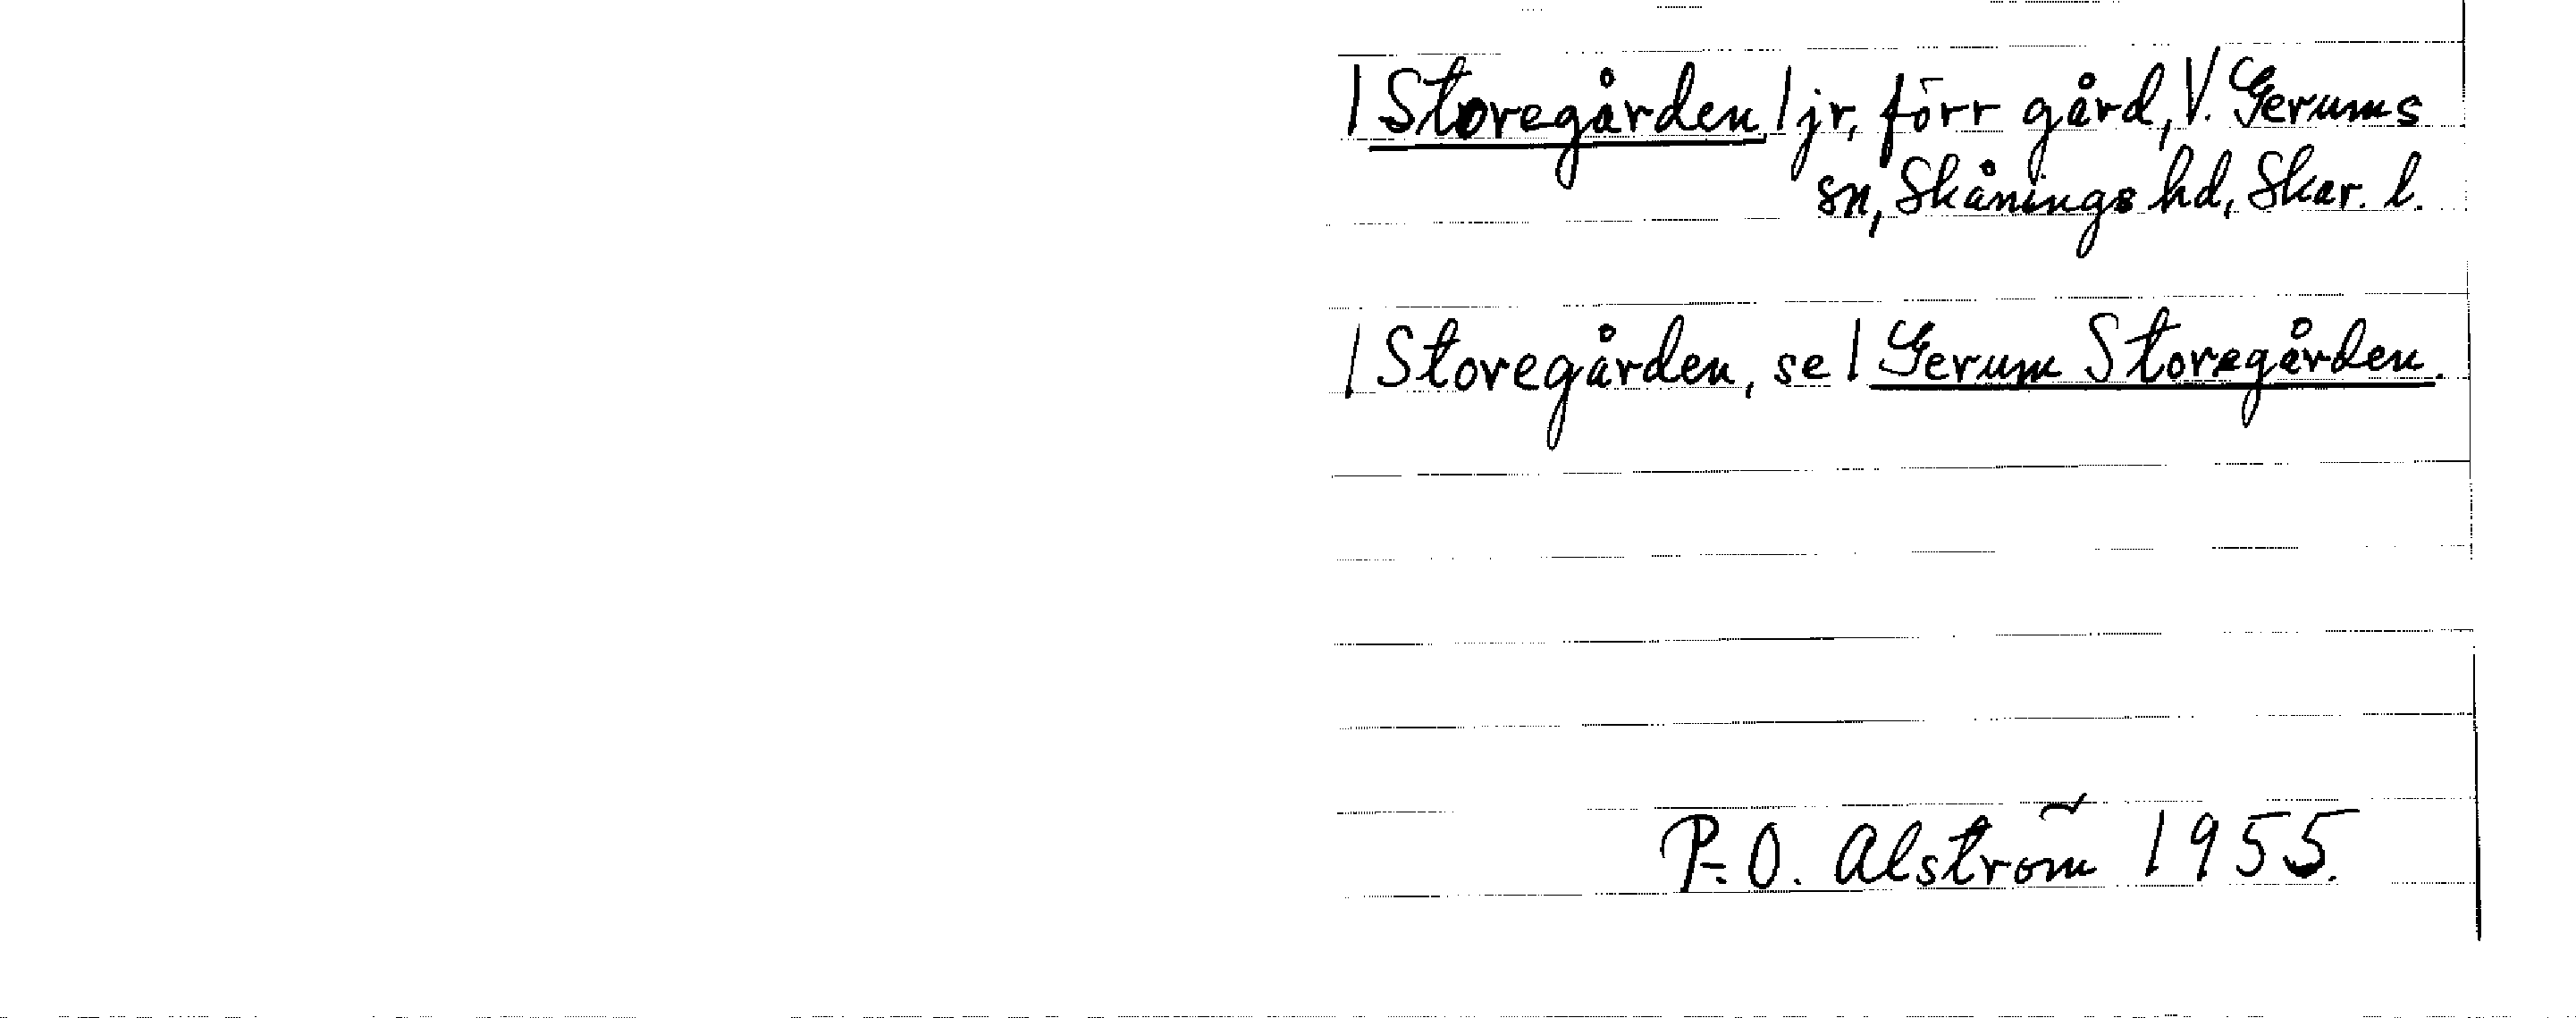 / Storegården / jr, förr gård, V. Gerums
sn, Skånings hd, Skar. l.
/ Storegården, se / Gerum Storegården.
P.-O. Alström 1955.